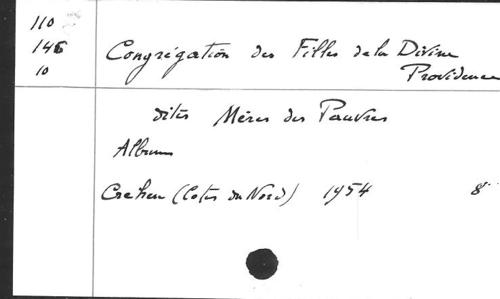 110
146
10
Congrégation des Filles de la Divine
Providence
dites Mères des Pauvres
Album
Crehen (Cotes du Nord) 1954 8°